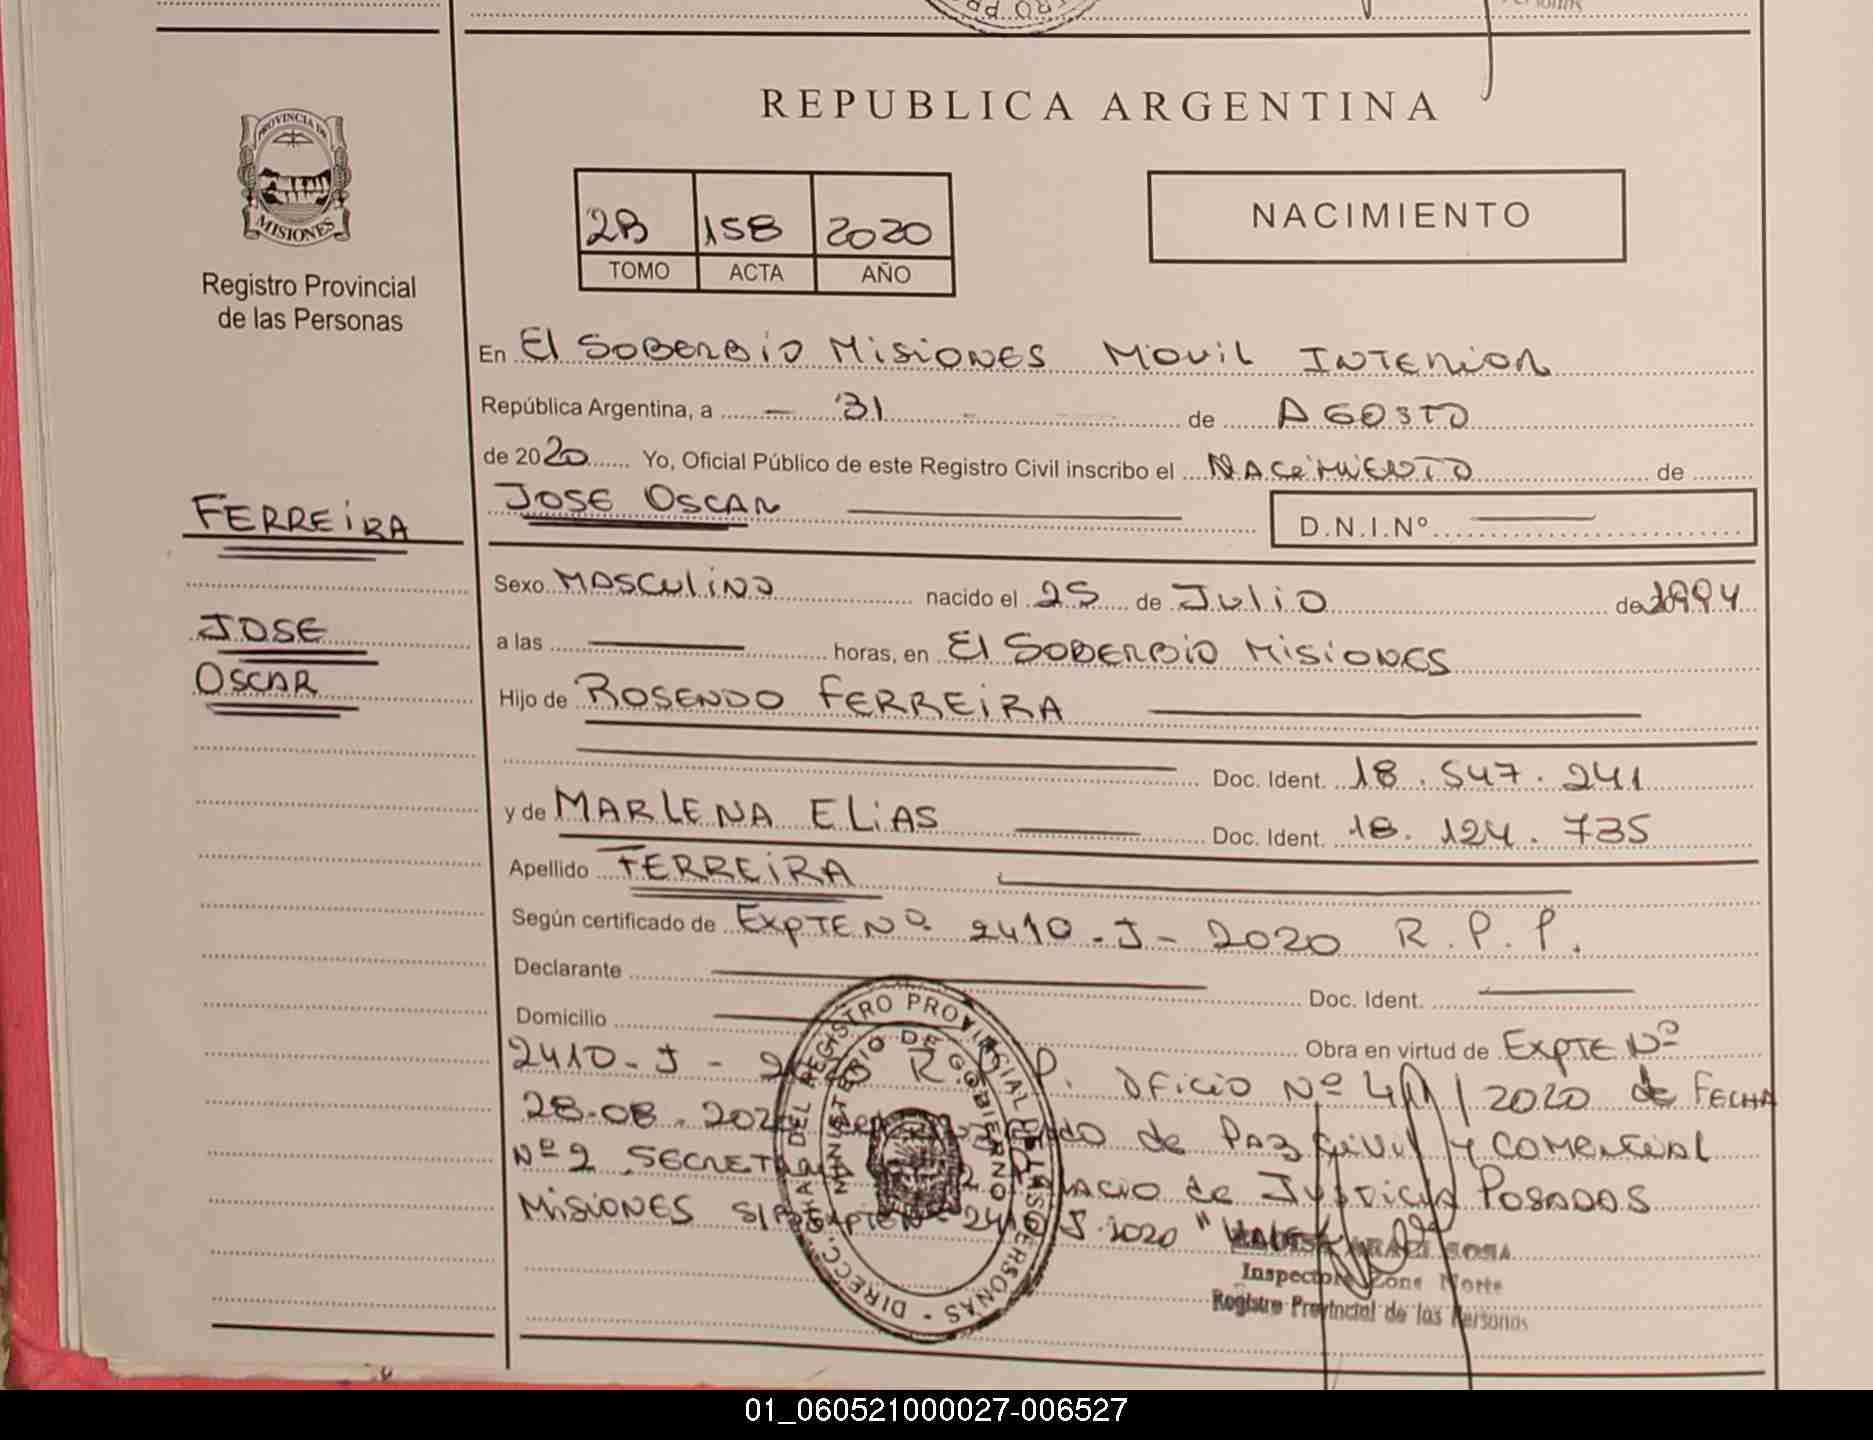 REPUBLICA ARGENTINA
PROVINCIA DE
MISIONES
Registro Provincial
de las Personas
2B 158 2020
TOMO ACTA AÑO
NACIMIENTO
En El SOBERBIO MISIONES MOVIL INTERIOR
República Argentina, a 31 de AGOSTO
de 2020 Yo, Oficial Público de este Registro Civil inscribo el NACIMIENTO de
JOSE OSCAR D.N.I.Nº
FERREIRA
JOSE
OSCAR
Sexo MASCULINO nacido el 25 de JULIO de 1994
a las horas, en El SOBERBIO MISIONES
Hijo de ROSENDO FERREIRA
Doc. Ident. 18.547.241
y de MARLENA ELIAS Doc. Ident. 18.124.735
Apellido FERREIRA
Según certificado de EXPTE Nº 2410-J-2020 R.P.P.
Declarante Doc. Ident.
Domicilio
Obra en virtud de EXPTE Nº
2410-J-2020 R.P.P. OFICIO Nº /2020 de FECHA
28-08-2020 de PAZ CIVIL Y COMERCIAL
Nº 2 SECRETARIA PALACIO de JUSTICIA POSADAS
MISIONES 2410 J-2020
DIRECC. GRAL DEL REGISTRO PROVINCIAL DE LAS PERSONAS
MINISTERIO DE GOBIERNO
SOSA
Inspectora Zona Norte
Registro Provincial de las Personas
01_060521000027-006527